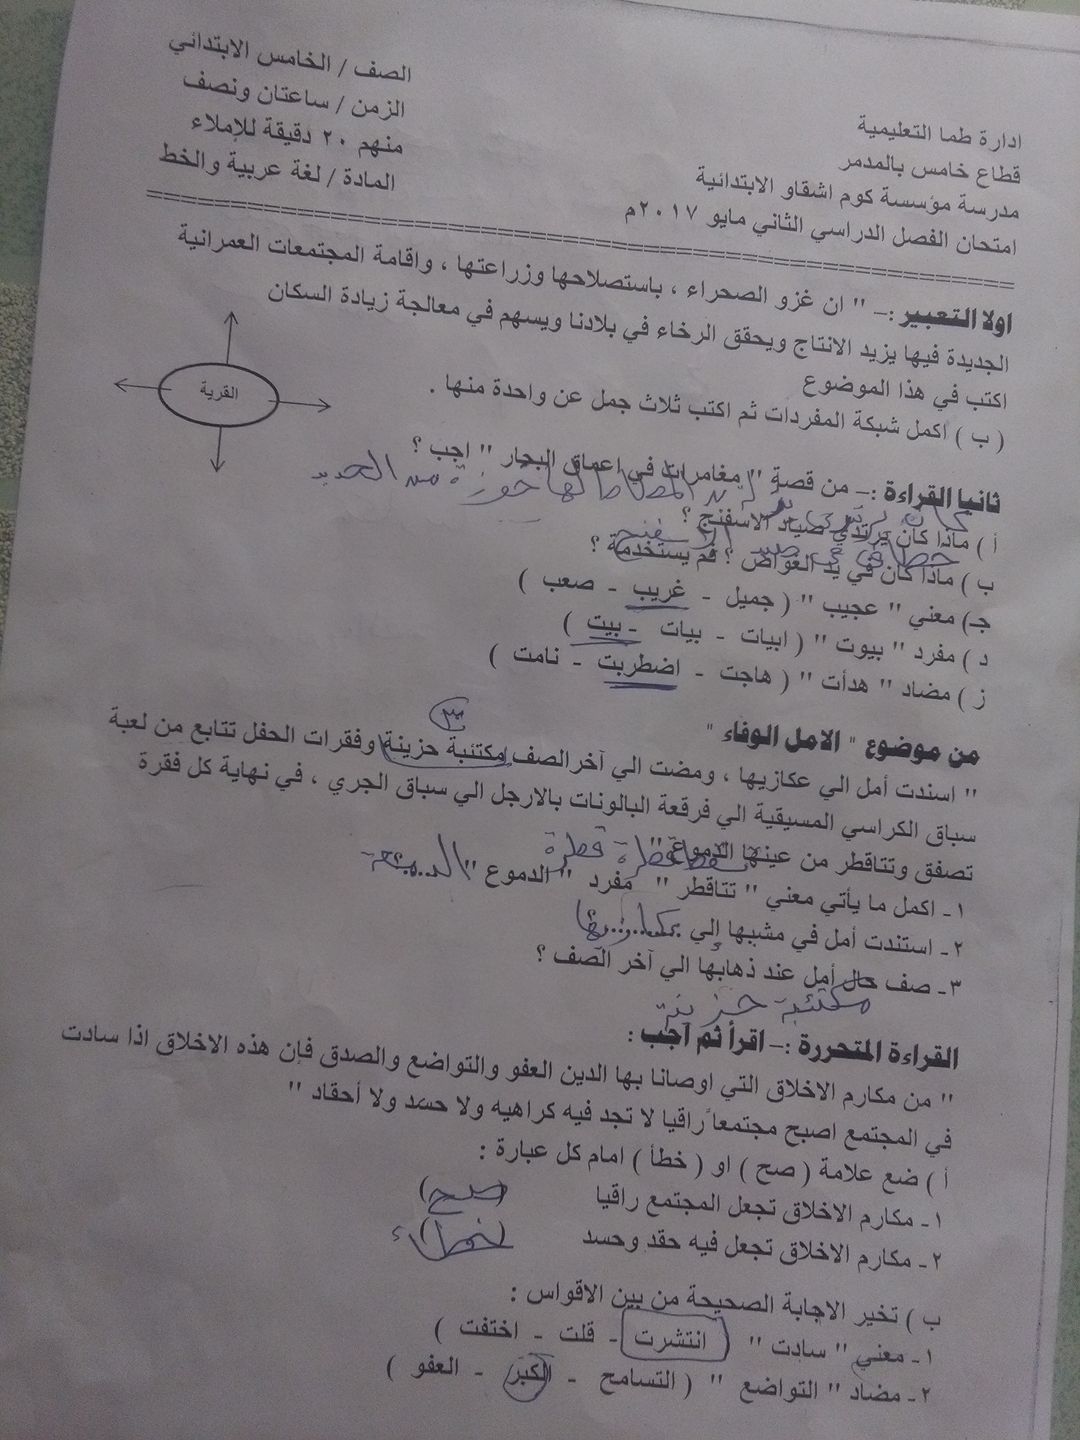 ادارة طما التعليمية
قطاع خامس بالمدمر
مدرسة مؤسسة كوم اشقاو الابتدائية
امتحان الفصل الدراسي الثاني مايو ٢٠١٧م
الصف / الخامس الابتدائي
الزمن / ساعتان ونصف
منهم ٢٠ دقيقة للإملاء
المادة / لغة عربية والخط
اولا التعبير :– " ان غزو الصحراء ، باستصلاحها وزراعتها ، واقامة المجتمعات العمرانية
الجديدة فيها يزيد الانتاج ويحقق الرخاء في بلادنا ويسهم في معالجة زيادة السكان
اكتب في هذا الموضوع
( ب ) اكمل شبكة المفردات ثم اكتب ثلاث جمل عن واحدة منها .
القرية
ثانيا القراءة :– من قصة " مغامرات في اعماق البحار " اجب ؟
كان يرتدي لها خوزة من الحديد
أ ) ماذا كان يرتدي صياد الاسفنج ؟
خطاف صيد الاسفنج
ب ) ماذا كان في يد الغواص ؟ فم يستخدمة ؟
جـ) معني " عجيب " ( جميل - غريب - صعب )
د ) مفرد " بيوت " ( ابيات - بيات - بيت )
ز ) مضاد " هدأت " ( هاجت - اضطربت - نامت )
من موضوع " الامل الوفاء "
٣
" اسندت أمل الي عكازيها ، ومضت الي آخرالصف مكتئبة حزينة وفقرات الحفل تتابع من لعبة
سباق الكراسي المسيقية الي فرقعة البالونات بالارجل الي سباق الجري ، في نهاية كل فقرة
تصفق وتتاقطر من عينها الدموع "
قطرة قطرة
١- اكمل ما يأتي معني " تتاقطر " مفرد " الدموع " الدمعة
٢- استندت أمل في مشيها إلي عكازيها
٣- صف حال أمل عند ذهابها الي آخر الصف ؟
مكتئبة حزينة
القراءة المتحررة :– اقرأ ثم أجب :
" من مكارم الاخلاق التي اوصانا بها الدين العفو والتواضع والصدق فإن هذه الاخلاق اذا سادت
في المجتمع اصبح مجتمعاً راقيا لا تجد فيه كراهيه ولا حسد ولا أحقاد "
أ ) ضع علامة ( صح ) او ( خطأ ) امام كل عبارة :
١- مكارم الاخلاق تجعل المجتمع راقيا (صح)
٢- مكارم الاخلاق تجعل فيه حقد وحسد (خطاء)
ب ) تخير الاجابة الصحيحة من بين الاقواس :
١- معني " سادت " ( انتشرت - قلت - اختفت )
٢- مضاد " التواضع " ( التسامح - الكبر - العفو )